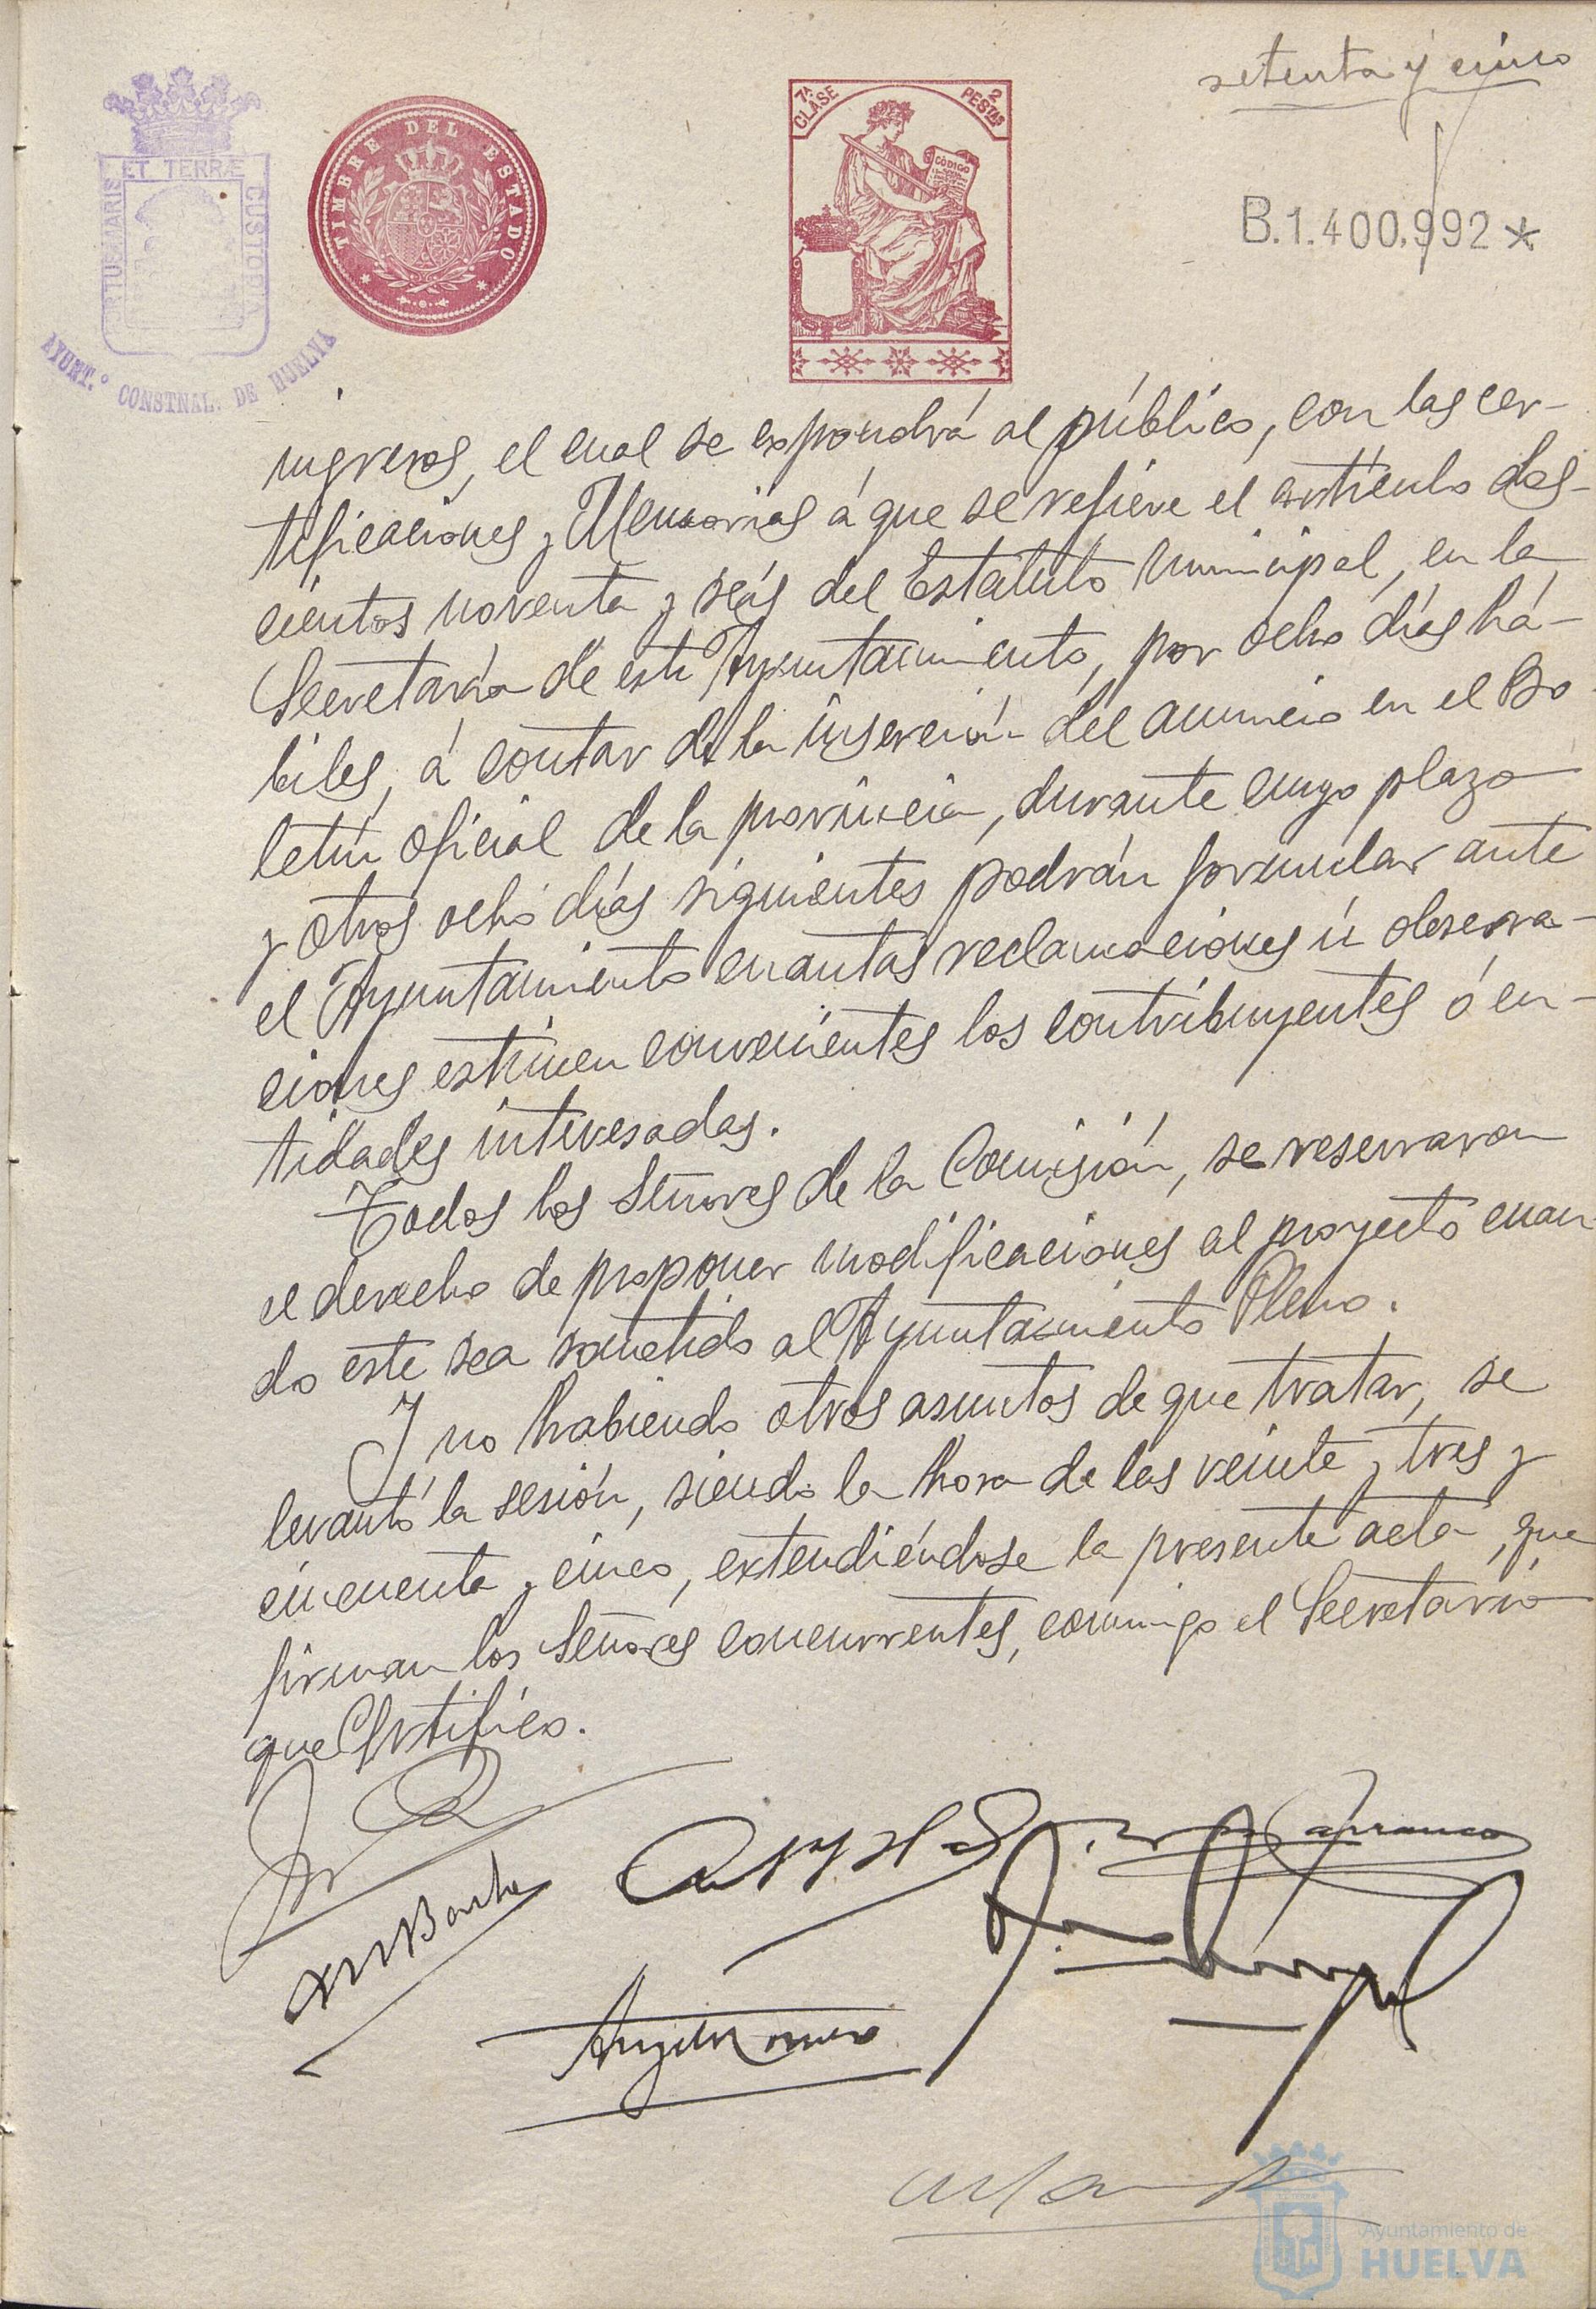 setenta y cinco
ET TERRÆ
PORTUS MARIS
CUSTODIA
AYUNT.º CONSTNAL. DE HUELVA
TIMBRE DEL ESTADO
7ª CLASE
2 PESTAS
CÓDIGO
B.1.400.992*
ingresos, el cual se expondrá al público, con las cer-
tificaciones y Memorias á que se refiere el artículo dos-
cientos noventa y seis del Estatuto Municipal, en la
Secretaría de este Ayuntamiento, por ocho días há-
biles, á contar de la inserción del anuncio en el Bo
letín oficial de la provincia, durante cuyo plazo
y otros ocho días siguientes podrán formular ante
el Ayuntamiento cuantas reclamaciones ú observa-
ciones estimen convenientes los contribuyentes ó en-
tidades interesadas.
Todos los Señores de la Comisión, se reservaron
el derecho de proponer modificaciones al proyecto cuan
do este sea sometido al Ayuntamiento Pleno.
Y no habiendo otros asuntos de que tratar, se
levantó la sesión, siendo la hora de las veinte y tres y
cincuenta y cinco, extendiéndose la presente acta, que
firman los Señores concurrentes, conmigo el Secretario
que Certifico.
Carranco
Angel Romero
Ayuntamiento de
HUELVA